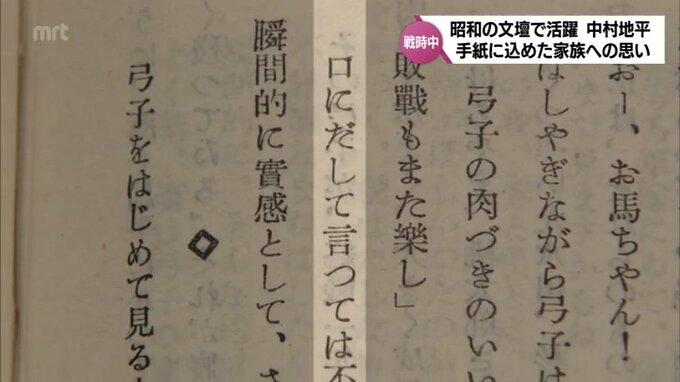 mrt
戦時中
昭和の文壇で活躍 中村地平
手紙に込めた家族への思い
おー、お馬ちやん!
はしやぎながら弓子は
弓子の肉づきのいい
敗戰もまた樂し」
口にだして言つては不
瞬間的に實感として、さ
◇
弓子をはじめて見る